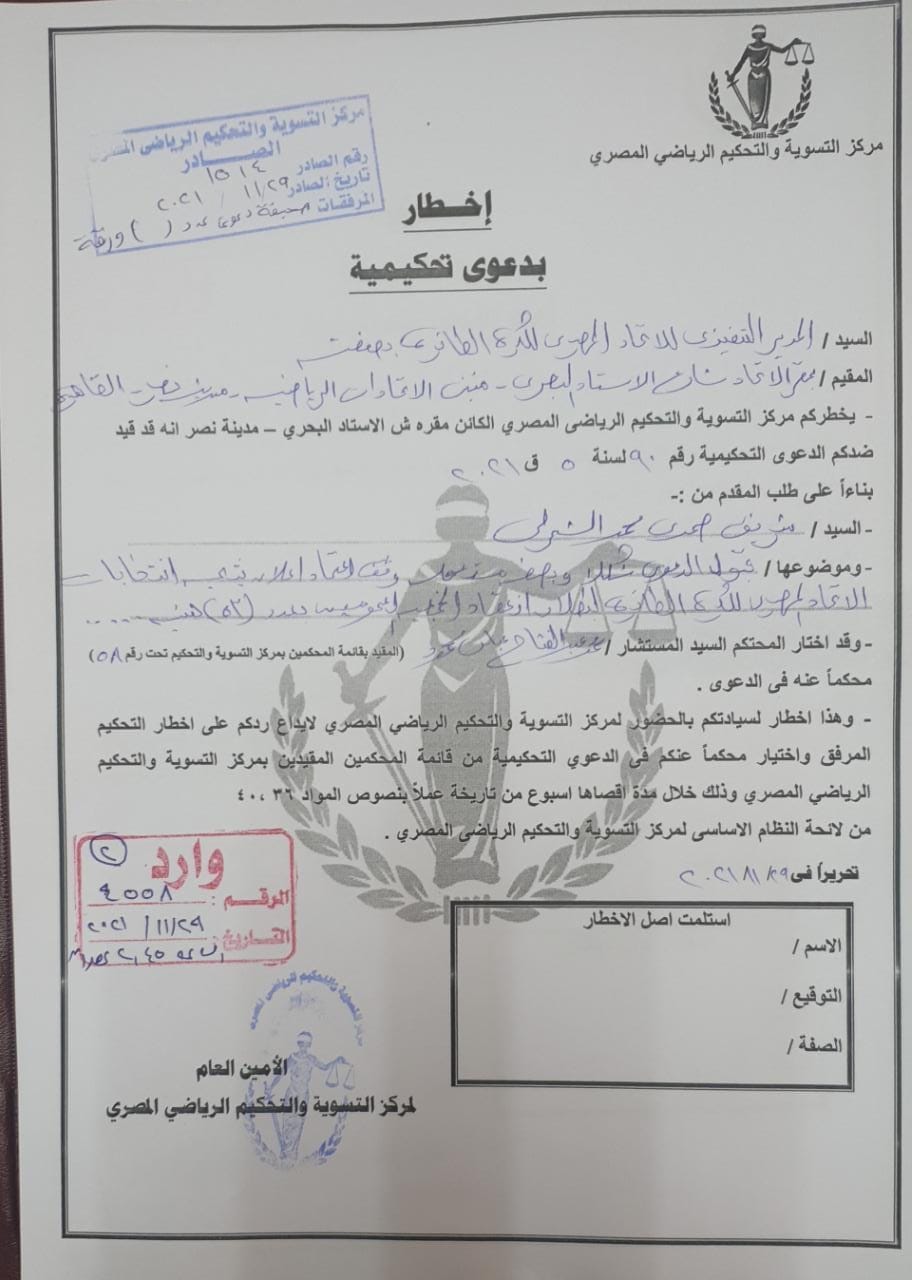 مركز التسوية والتحكيم الرياضي المصري
مركز التسوية والتحكيم الرياضى المصرى
الصـــادر
رقم الصادر ١٥١٤
تاريخ الصادر ١١/٢٩ / ٢٠٢١
المرفقات صحيفة دعوى عدد ( ) ورقة
إخـطار
بدعوى تحكيمية
السيد / المدير التنفيذى للاتحاد المصرى للكرة الطائرة بصفته
المقيم / بمقر الاتحاد شارع الاستاد البحرى - مبنى الاتحادات الرياضية - مدينة نصر - القاهرة
- يخطركم مركز التسوية والتحكيم الرياضى المصري الكائن مقره ش الاستاد البحري – مدينة نصر انه قد قيد
ضدكم الدعوى التحكيمية رقم ٩٠ لسنة ٥ ق ٢٠٢١
بناءاً على طلب المقدم من :-
- السيد / شريف حمدى محمد
- وموضوعها / قبول الدعوى شكلا وبصفة مستعجلة وقف اعتماد اعلان نتيجة انتخابات
الاتحاد المصرى للكرة الطائرة لبطلان انعقاد الجمعية العمومية عدد (٥٢) هيئة ....
- وقد اختار المحتكم السيد المستشار / عبد الفتاح (المقيد بقائمة المحكمين بمركز التسوية والتحكيم تحت رقم ٥٨)
محكماً عنه فى الدعوى .
- وهذا اخطار لسيادتكم بالحضور لمركز التسوية والتحكيم الرياضي المصري لايداع ردكم على اخطار التحكيم
المرفق واختيار محكماً عنكم فى الدعوي التحكيمية من قائمة المحكمين المقيدين بمركز التسوية والتحكيم
الرياضي المصري وذلك خلال مدة اقصاها اسبوع من تاريخة عملاً بنصوص المواد ٣٦ ،٤٠
من لائحة النظام الاساسى لمركز التسوية والتحكيم الرياضي المصري .
تحريراً فى ٢٠٢١/١١/٢٩
٢
وارد
الرقم : ٤٥٥٨
التاريخ : ١١/٢٩/ ٢٠٢١
الساعة ٢,٤٥ عصرا
استلمت اصل الاخطار
الاسم /
التوقيع /
الصفة /
مركز التسوية والتحكيم الرياضي المصرى
الأمين العام
لمركز التسوية والتحكيم الرياضي المصري